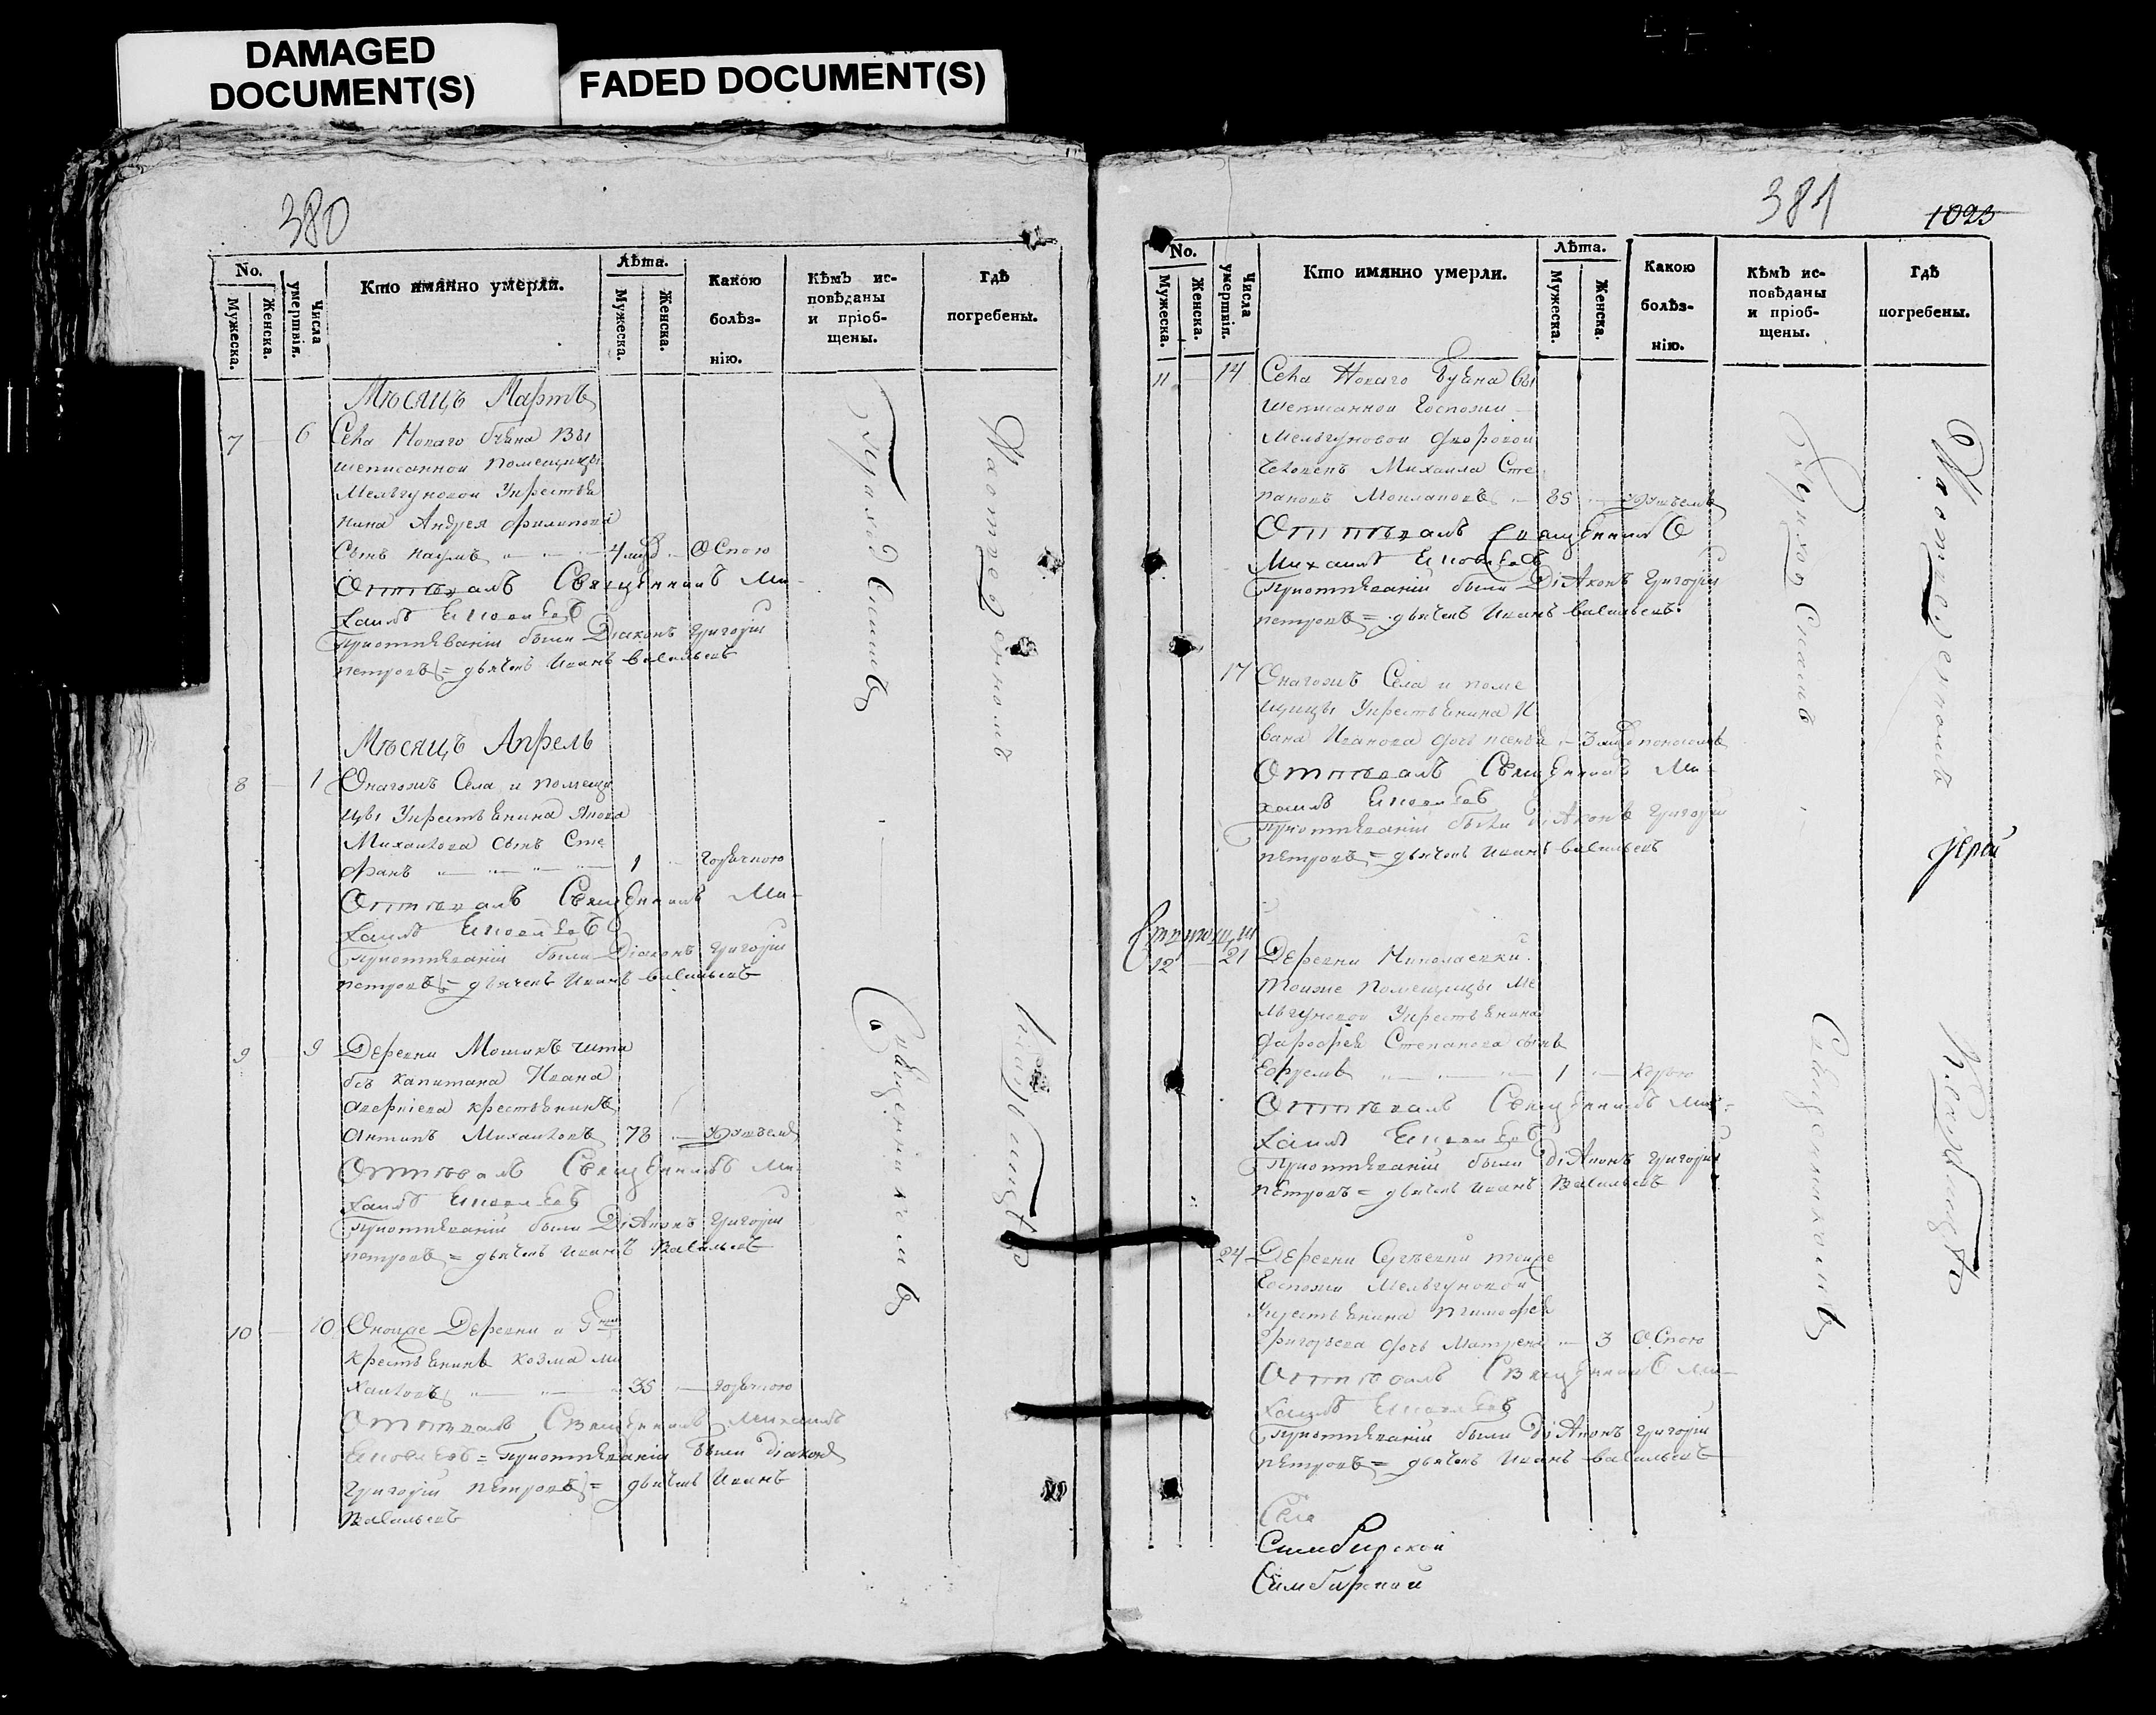 DAMAGED
DOCUMENT(S)
FADED DOCUMENT(S)
380
No.
Мужеска.
Женска.
Числа умертвія.
Кто имянно умерли.
Лѣта.
Мужеска.
Женска.
Какою
болѣз-
нію.
Кѣмъ ис-
повѣданы
и пріоб-
щены.
Гдѣ
погребены.
Мѣсяцъ Мартъ
7 6 Села Новаго вы
шеписанной помещицы
Мельгуновой Укрестья
нина Андрея Филипова
Сынъ наумъ 4 Оспою
Отпевалъ Священникъ Ми-
хаилъ
Приотпѣваніи были Діаконъ григорій
петровъ = дьячекъ Иванъ васильевъ
Мѣсяцъ Апрель
8 1 Онагожъ Села и помещи
цы Укрестьянина
Михайлова сынъ Сте
фанъ 1 горячкою
Отпевалъ Священникъ Ми-
хаилъ
Приотпѣваніи были Діаконъ григорій
петровъ = дьячекъ Иванъ васильевъ
9 9 Деревни
капитана Ивана
крестьянинъ
Антипъ Михайловъ 78
Отпевалъ Священникъ Ми-
хаилъ
Приотпѣваніи были Діаконъ григорій
петровъ = дьячекъ Иванъ Васильевъ
10 10 Оноиже Деревни и
крестьянинъ козма ми
хайловъ 35 горячкою
Отпевалъ Священникъ Михаилъ
= Приотпѣваніи были діаконъ
григорій петровъ = дьячекъ Иванъ
Васильевъ
Приходскимъ
Священникомъ
На отведенномъ
кладбищѣ
381
1023
No.
Мужеска.
Женска.
Числа умертвія.
Кто имянно умерли.
Лѣта.
Мужеска.
Женска.
Какою
болѣз-
нію.
Кѣмъ ис-
повѣданы
и пріоб-
щены.
Гдѣ
погребены.
11 14 Села Новаго вы
шеписанной Госпожи
Мельгуновой дворовой
человекъ Михаила Сте
пановъ 85
Отпевалъ Священникъ
Михаилъ
Приотпѣваніи были Діаконъ григорій
петровъ = дьячекъ Иванъ васильевъ.
17 Онагожъ Села и поме
щицы Укрестьянина И
вана Иванова дочь 3 поносомъ
Отпевалъ Священникъ Ми-
хаилъ
Приотпѣваніи были Діаконъ григорій
петровъ = дьячекъ Иванъ васильевъ
12 21 Деревни Николаевки
тоиже помещицы Ме
льгуновой Укрестьянина
Степанова сынъ
Ефремъ 1 корью
Отпевалъ Священникъ Ми-
хаилъ
Приотпѣваніи были Діаконъ григорій
петровъ = дьячекъ Иванъ Васильевъ
24 Деревни Сергѣевки тоиже
Госпожи Мельгуновой
Укрестьянина тимофея
Григорьева дочь Матрена 3 Оспою
Отпевалъ Священникъ Ми-
хаилъ
Приотпѣваніи были Діаконъ григорій
петровъ = дьячекъ Иванъ васильевъ
Села
Симбирской
Симбирской
Приходскимъ
Священникомъ
На отведенномъ
кладбищѣ
Іерей